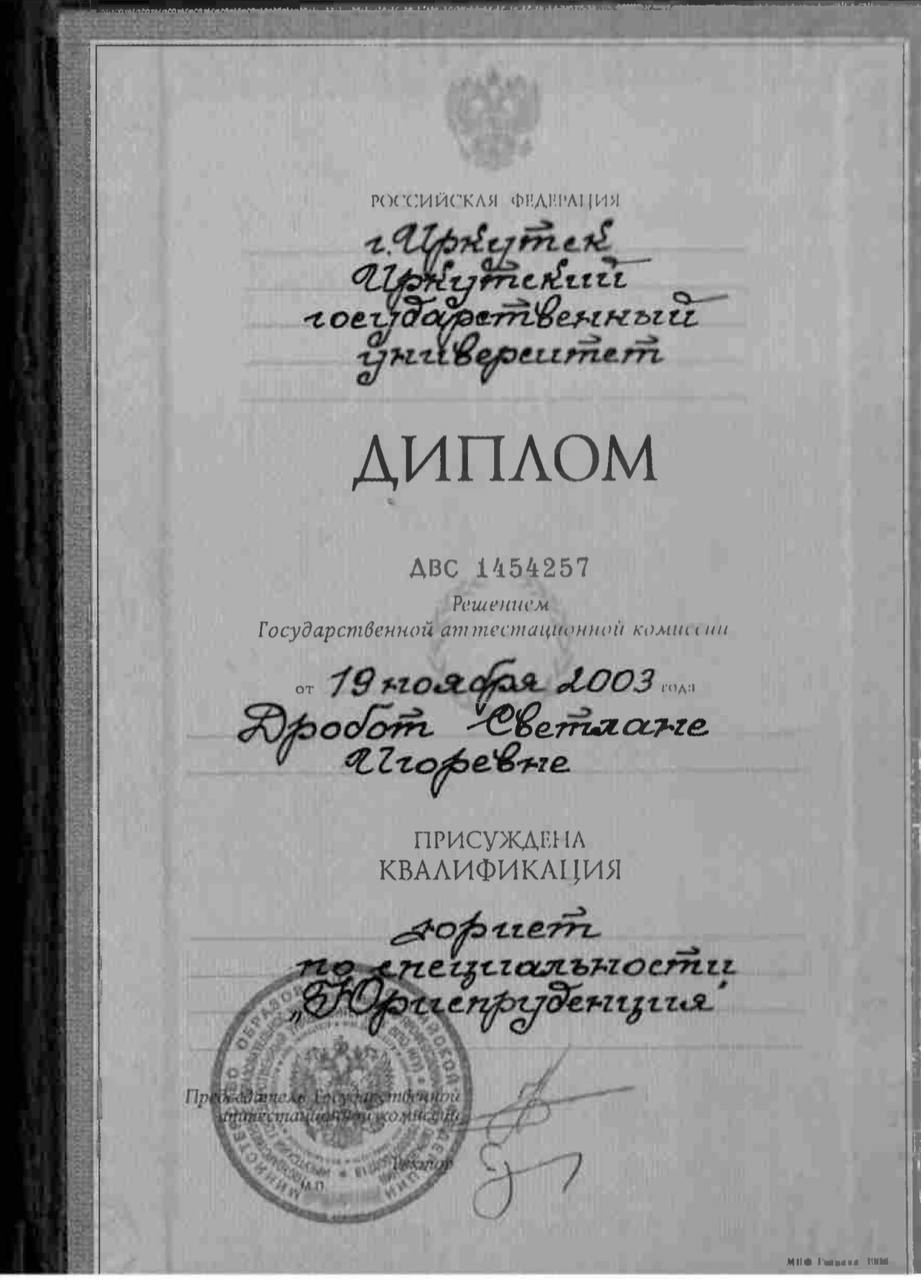 РОССИЙСКАЯ ФЕДЕРАЦИЯ
г. Иркутск
Иркутский
государственный
университет
ДИПЛОМ
ДВС 1454257
Решением
Государственной аттестационной комиссии
от 19 ноября 2003 года
Дробот Светлане
Игоревне
ПРИСУЖДЕНА
КВАЛИФИКАЦИЯ
юрист
по специальности
„Юриспруденция"
Председатель Государственной
аттестационной комиссии
Ректор
М.П.